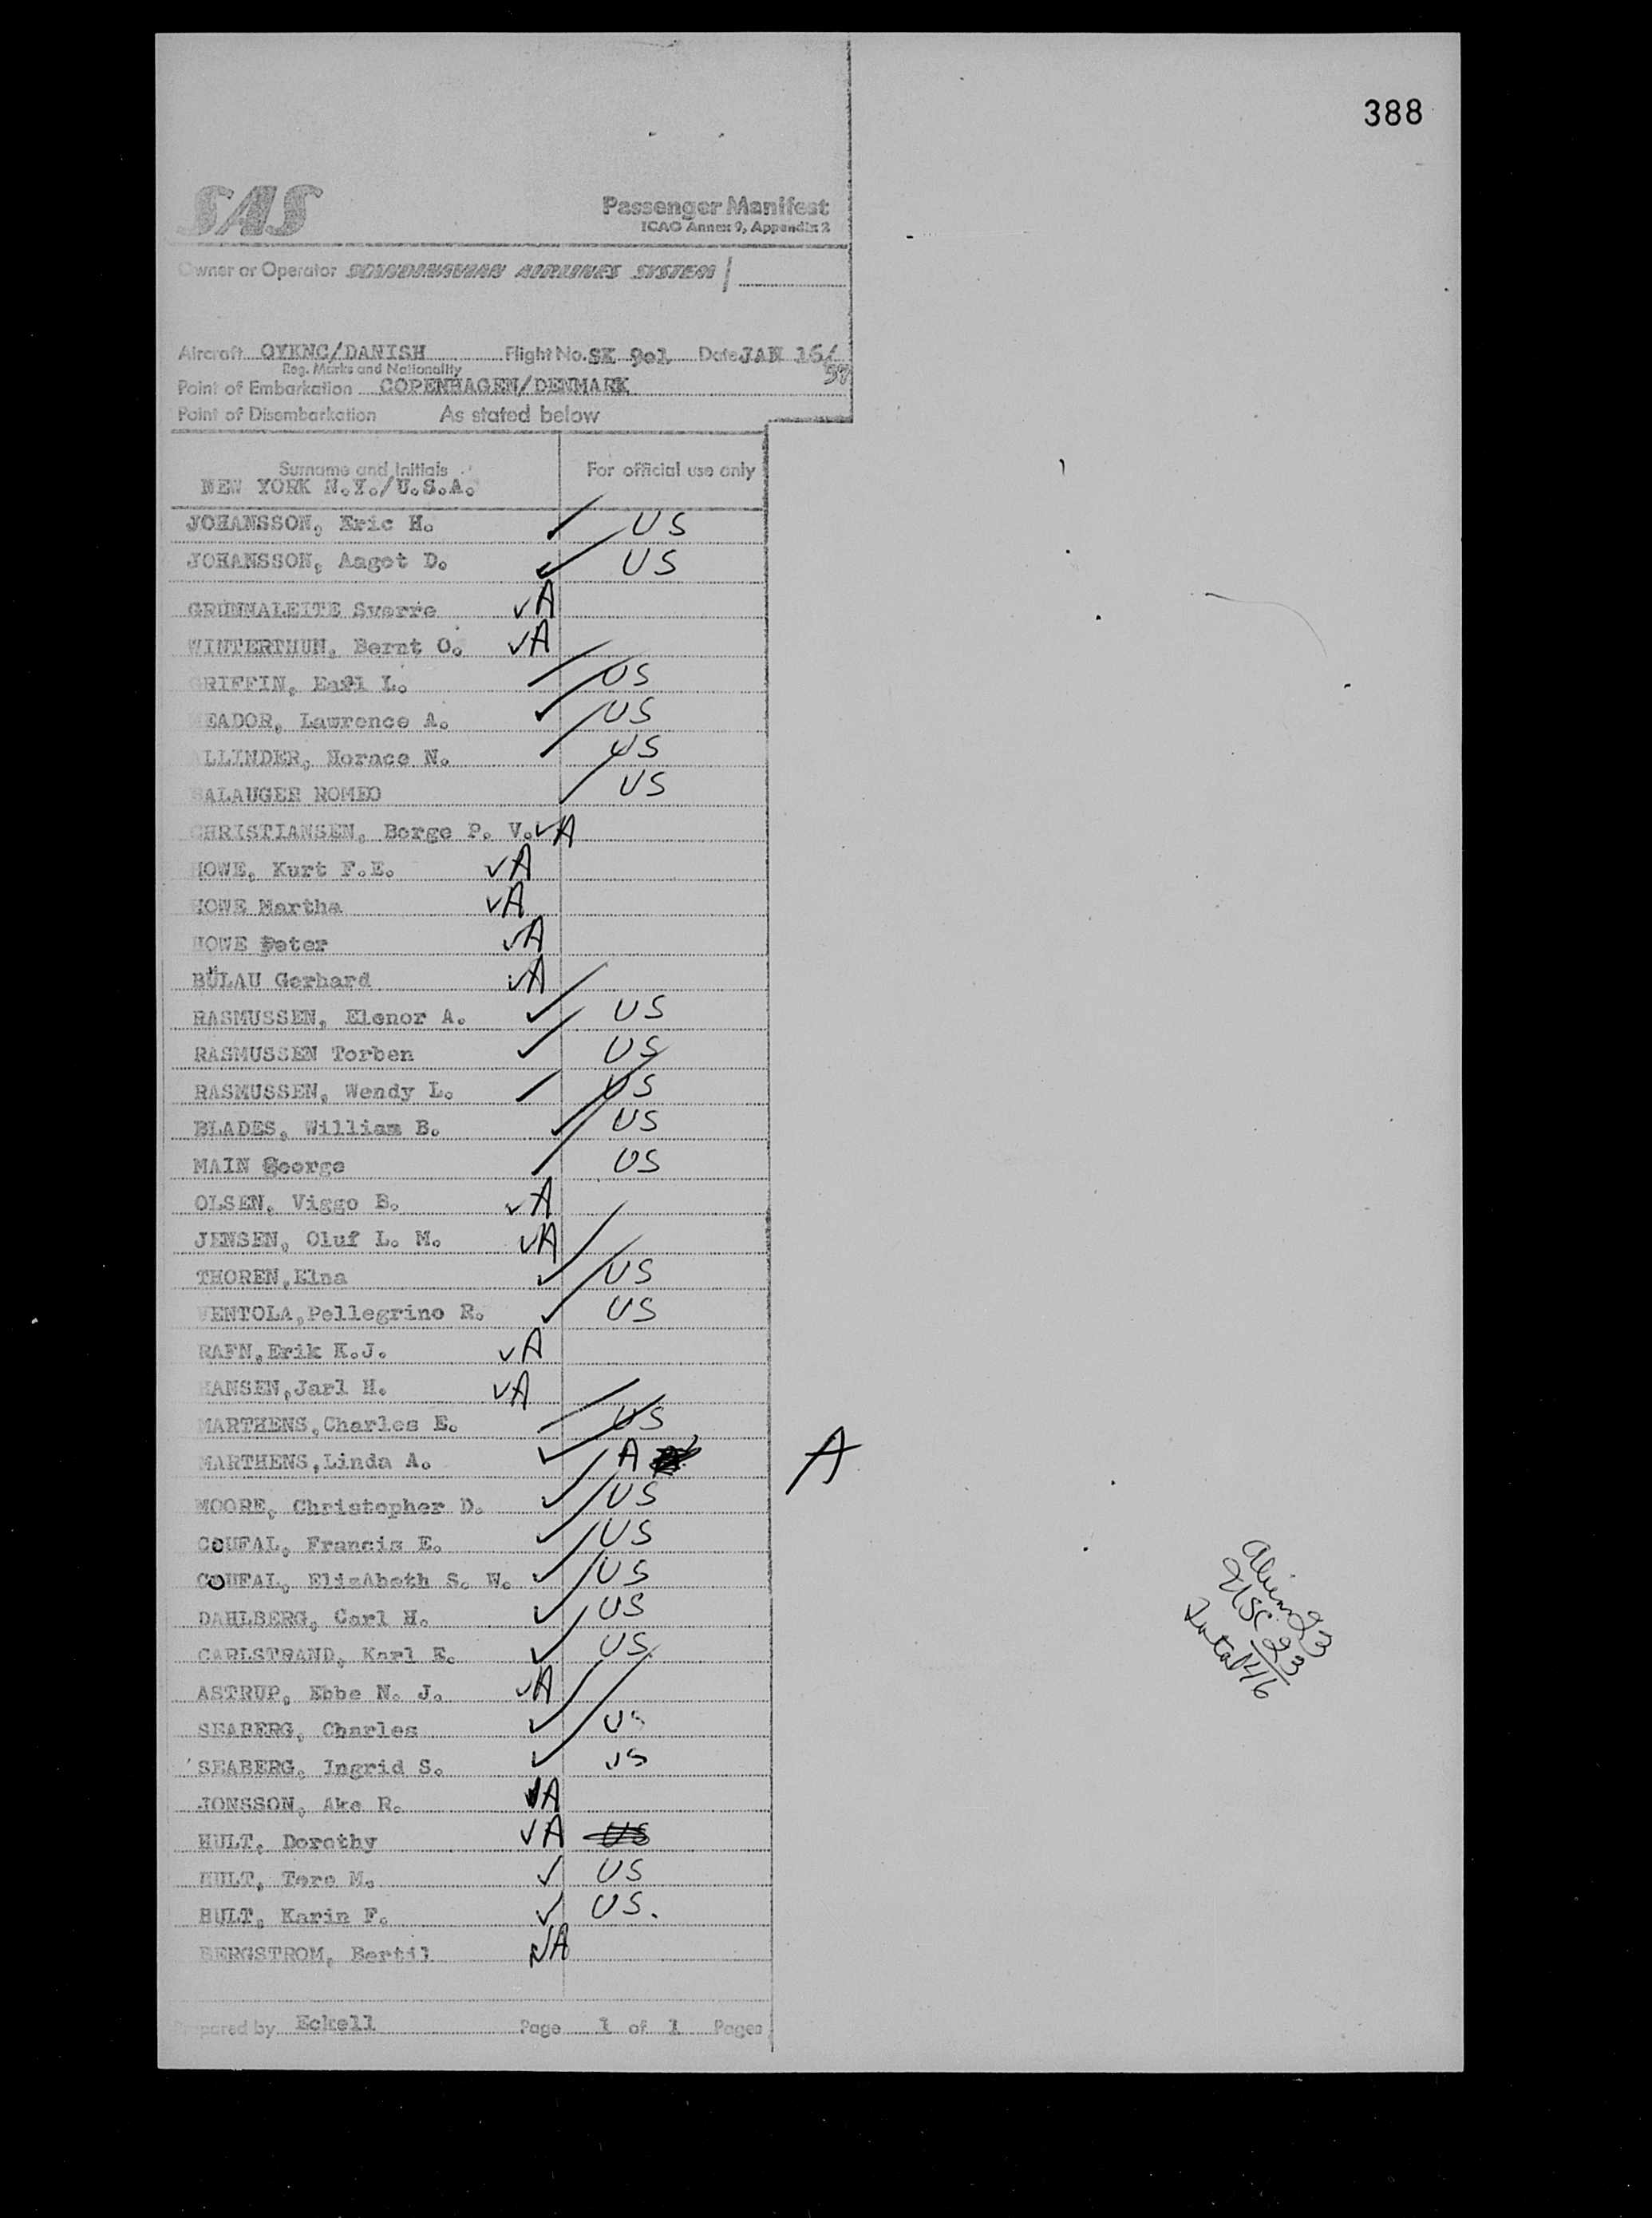 388
SAS
Passenger Manifest
ICAO Annex 9, Appendix 2
Owner or Operator SCANDINAVIAN AIRLINES SYSTEM
Aircraft OYKNC/DANISH Flight No. SK 901 Date JAN 16/
Reg. Marks and Nationality
Point of Embarkation COPENHAGEN/DENMARK
Point of Disembarkation As stated below
Surname and Initials For official use only
NEW YORK N.Y./U.S.A.
JOHANSSON, Eric H. US
JOHANSSON, Aagot D. US
GRUNNALEITE Sverre A
WINTERTHUN, Bernt O. A
GRIFFIN, Earl L. US
MEADOR, Lawrence A. US
ALLINDER, Horace N. US
BALAUGER ROMEO US
CHRISTIANSEN, Borge P. V. A
HOWE, Kurt F.E. A
HOWE Martha A
HOWE Peter A
BÜLAU Gerhard A
RASMUSSEN, Elenor A. US
RASMUSSEN Torben US
RASMUSSEN, Wendy L. US
BLADES, William B. US
MAIN George US
OLSEN, Viggo B. A
JENSEN, Oluf L. M. A
THOREN, Elna US
VENTOLA, Pellegrino R. US
RAFN, Erik K.J. A
HANSEN, Jarl H. A
MARTHENS, Charles E. US
MARTHENS, Linda A. A A
MOORE, Christopher D. US
COUFAL, Francis E. US
COUFAL, ElizAbeth S. W. US
DAHLBERG, Carl H. US
CARLSTRAND, Karl E. US
ASTRUP, Ebbe N. J. A
SEABERG, Charles US
SEABERG, Ingrid S. US
JONSSON, Ake R. A
HULT, Dorothy A US
HULT, Tore M. US
HULT, Karin F. US.
BERGSTROM, Bertil A
Prepared by Eckell Page 1 of 1 Pages
Alien 23
USC 23
Total 46